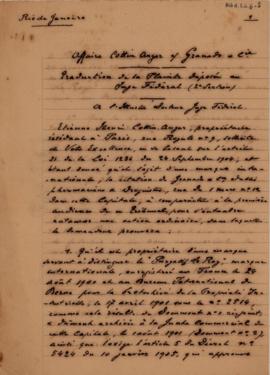 Rio de Janeiro
1
Affaire Cottin Auger y Granado & Cie
Traduction de la Plainte déposée au
Juge Fédéral (2e Section)
A l'Illustre Docteur Juge Fédéral.
Etienne Henri Cottin Auger, propriétaire
résident à Paris, rue
Votre Excellence, se basant sur l'article
31 de la Loi 1236 du 24 Septembre 1904, et
étant donné qu'il s'agit d'une marque inter-
nationale, la citation de Granado & Cie
pharmaciens & Droguistes, rue du 1er Mars no 12
Dans cette Capitale, à comparaître à la première
audience de ce Tribunal, pour s'entendre
une action ordinaire, dans laquelle
le demandeur prouvera:
1. Qu'il est propriétaire d'une marque
servant à distinguer le "Purgatif Le Roy" marque
internationale, enregistrée en France le 24
août 1900 et au Bureau International de
Berne pour la Protection de la Propriété In-
dustrielle, le 17 avril 1901 sous le no 2514
comme cela résulte du Document no 1 ci-joint,
& dûment archivée à la Junte Commerciale de
cette Capitale, le août 1901 (Document no 2)
ainsi que l'exige l'article 5 du Décret no
5424 du 10 janvier 1905, qui approuve